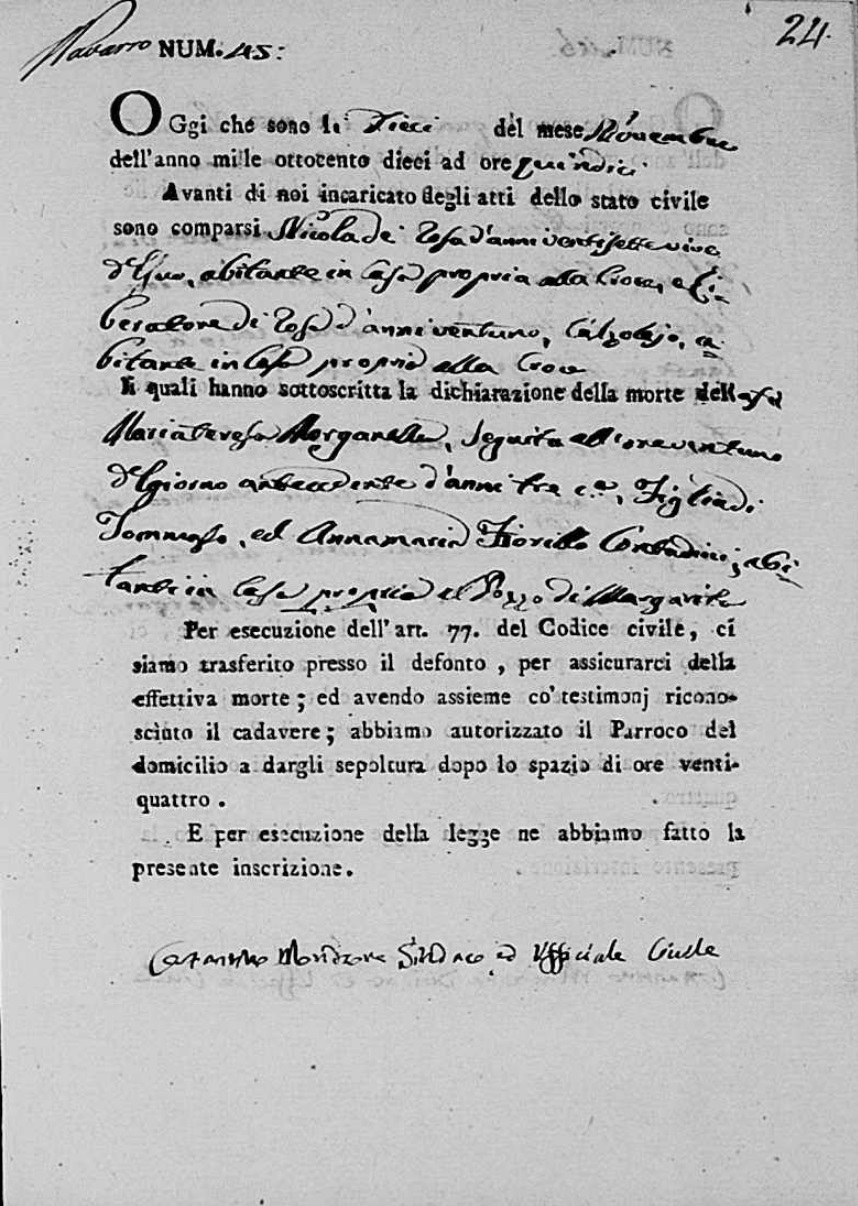 24.
Navarro NUM. 45:
OGgi che sono li Dieci del mese Novembre
dell'anno mille ottocento dieci ad ore quindici
Avanti di noi incaricato degli atti dello stato civile
sono comparsi Nicola di Rosa d'anni ventisette vive
del suo, abitante in Casa propria alla Croce, e Li-
beratore di Rosa d'anni ventuno, Calzolajo, a-
bitante in Casa propria alla Croce
li quali hanno sottoscritta la dichiarazione della morte della
Mariateresa Morganella, seguita all'ore ventuno
del giorno antecedente d'anni tre c.a, Figlia di
Tommaso, ed Annamaria Fiorillo Contadini, abi-
tanti in Casa propria al Pozzo di Margarita
Per esecuzione dell'art. 77. del Codice civile, ci
siamo trasferito presso il defonto, per assicurarci della
effettiva morte; ed avendo assieme co' testimonj ricono-
sciuto il cadavere; abbiamo autorizzato il Parroco del
domicilio a dargli sepoltura dopo lo spazio di ore venti-
quattro.
E per esecuzione della legge ne abbiamo fatto la
presente inscrizione.
Sindaco ed Ufficiale Civile